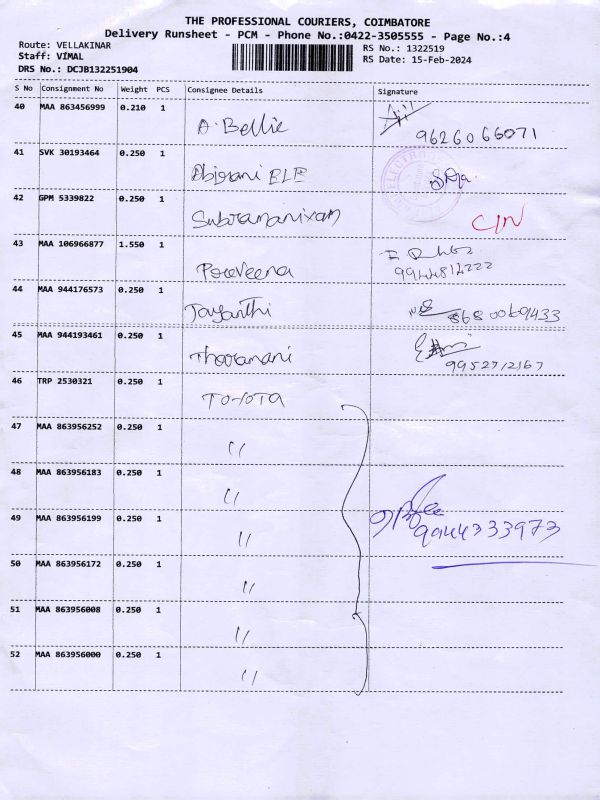 THE PROFESSIONAL COURIERS, COIMBATORE
Delivery Runsheet - PCM - Phone No.:0422-3505555 - Page No.:4
Route: VELLAKINAR
RS No.: 1322519
Staff: VIMAL
RS Date: 15-Feb-2024
DRS No.: DCJB132251904
S No Consignment No Weight PCS Consignee Details Signature
40 MAA 863456999 0.210 1
A. Bellie
9626066071
41 SVK 30193464 0.250 1
Abirami ELE
42 GPM 5339822 0.250 1
Subramaniyam
43 MAA 106966877 1.550 1
Praveena
44 MAA 944176573 0.250 1
Jayanthi
8680069433
45 MAA 944193461 0.250 1
Tharamani
9952712167
46 TRP 2530321 0.250 1
TOYOTA
47 MAA 863956252 0.250 1
"
48 MAA 863956183 0.250 1
"
49 MAA 863956199 0.250 1
"
9944333973
50 MAA 863956172 0.250 1
"
51 MAA 863956008 0.250 1
"
52 MAA 863956000 0.250 1
"